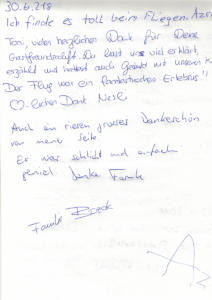 30.6.218
Ich finde es toll beim Fliegen
Toni, vielen herzlichen Dank für Deine
Gastfreundschaft. Du hast uns viel erklärt,
erzählt und hattest auch Geduld mit unseren
Der Flug war ein fantastisches Erlebnis!!
♡-lichen Dank
Auch ein riesen grosses Dankeschön
von meiner Seite.
Es war schlicht und einfach
genial. Danke
Familie